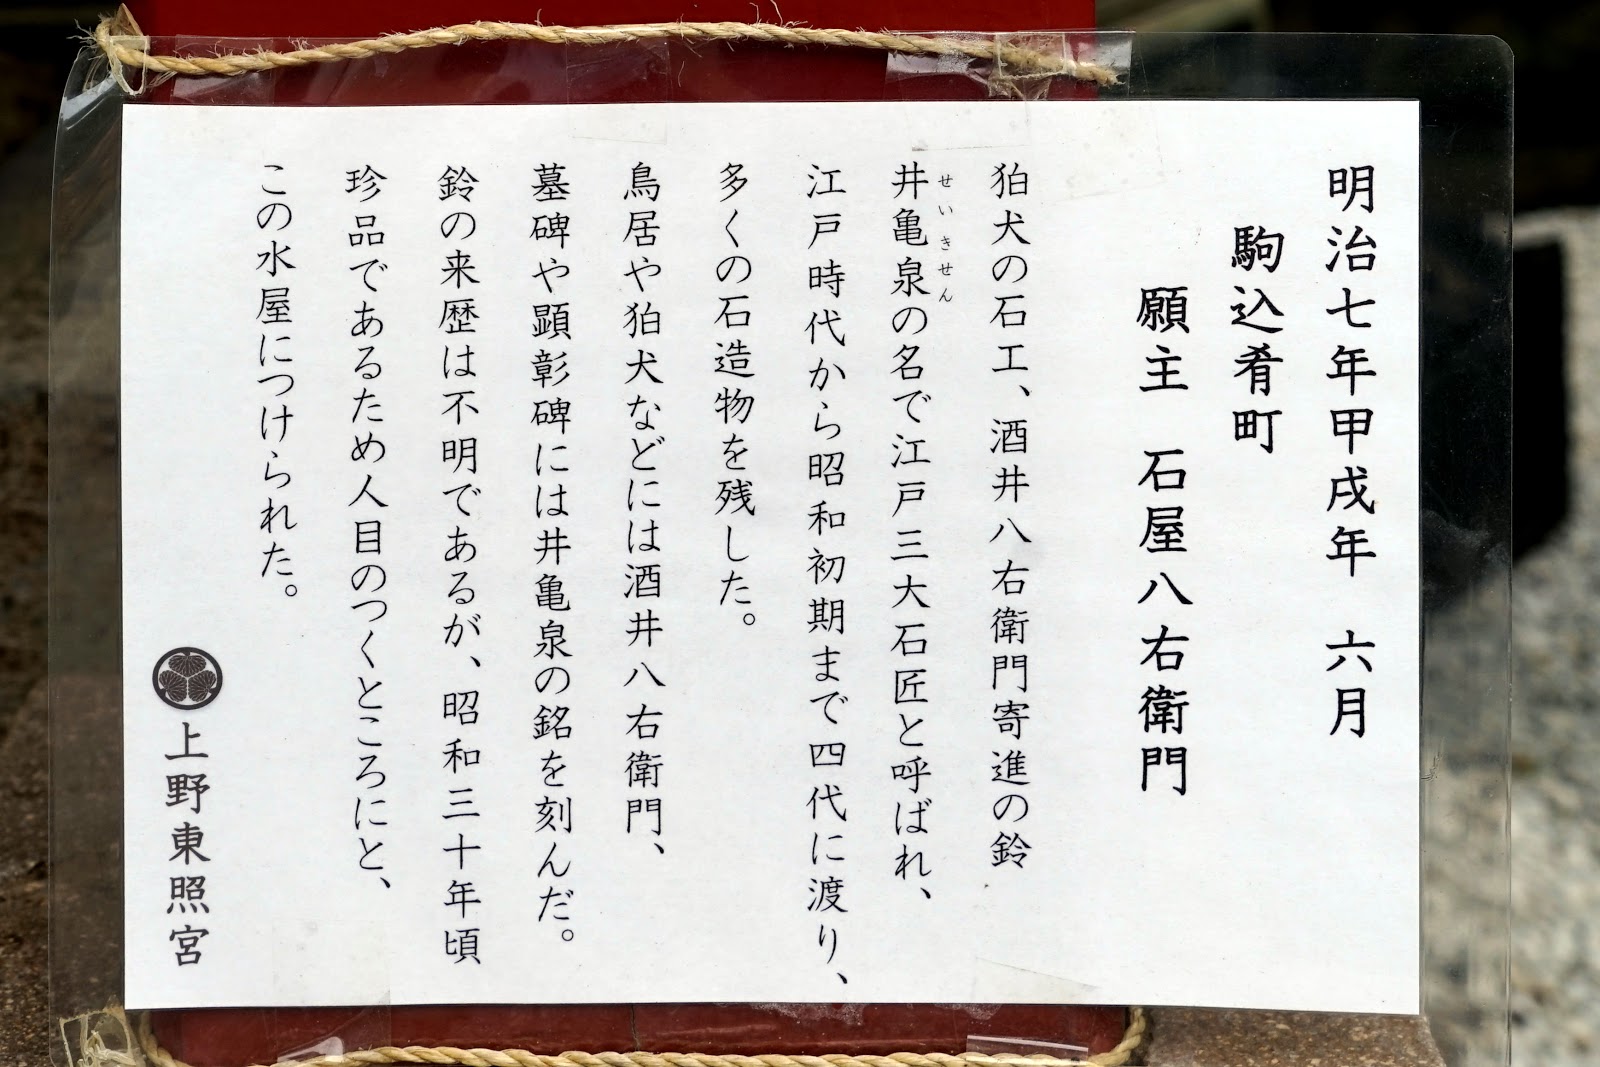 明治七年甲戌年　六月
駒込肴町
願主　石屋八右衛門
狛犬の石工、酒井八右衛門寄進の鈴
せいきせん
井亀泉の名で江戸三大石匠と呼ばれ、
江戸時代から昭和初期まで四代に渡り、
多くの石造物を残した。
鳥居や狛犬などには酒井八右衛門、
墓碑や顕彰碑には井亀泉の銘を刻んだ。
鈴の来歴は不明であるが、昭和三十年頃
珍品であるため人目のつくところにと、
この水屋につけられた。
上野東照宮